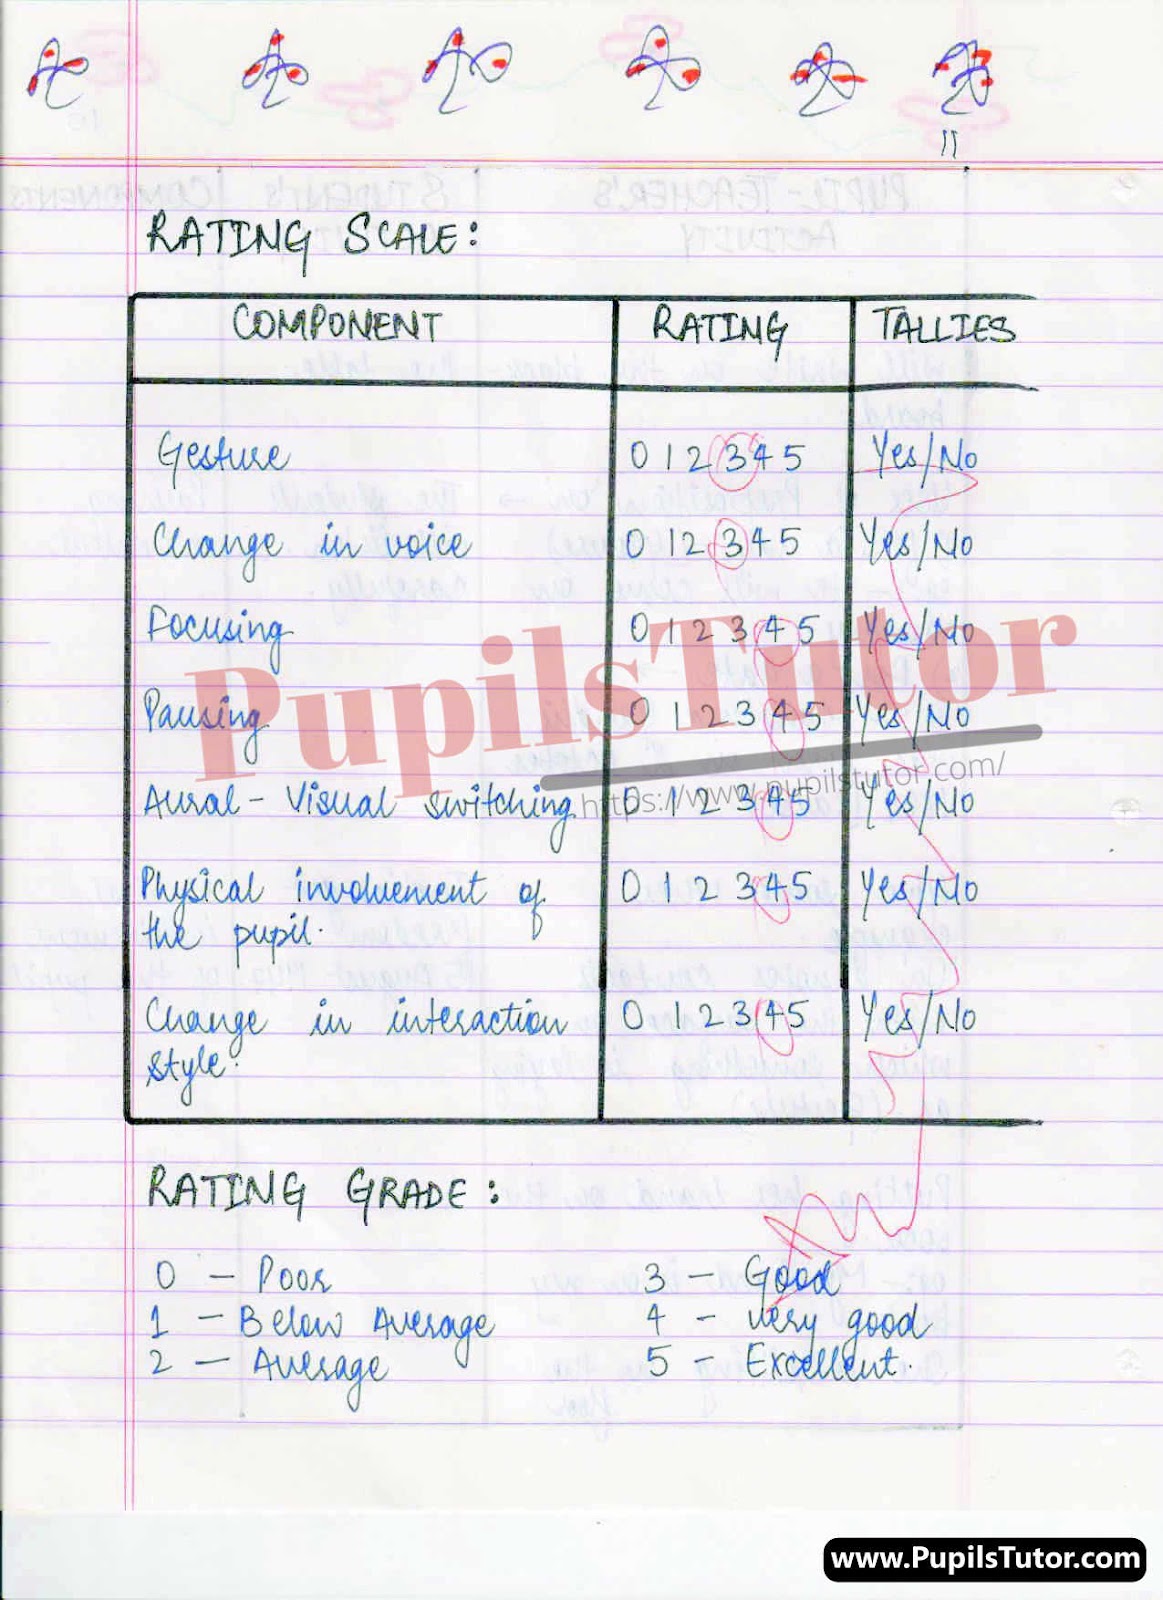 11
RATING SCALE:
COMPONENT RATING TALLIES
Gesture 0 1 2 3 4 5 Yes/No
Change in voice 0 1 2 3 4 5 Yes/No
Focusing 0 1 2 3 4 5 Yes/No
Pausing 0 1 2 3 4 5 Yes/No
PupilsTutor
https://www.pupilstutor.com/
Aural-Visual switching 0 1 2 3 4 5 Yes/No
Physical involvement of 0 1 2 3 4 5 Yes/No
the pupil.
Change in interaction 0 1 2 3 4 5 Yes/No
style.
RATING GRADE:
0 - Poor 3 - Good
1 - Below Average 4 - Very good
2 - Average 5 - Excellent.
www.PupilsTutor.com